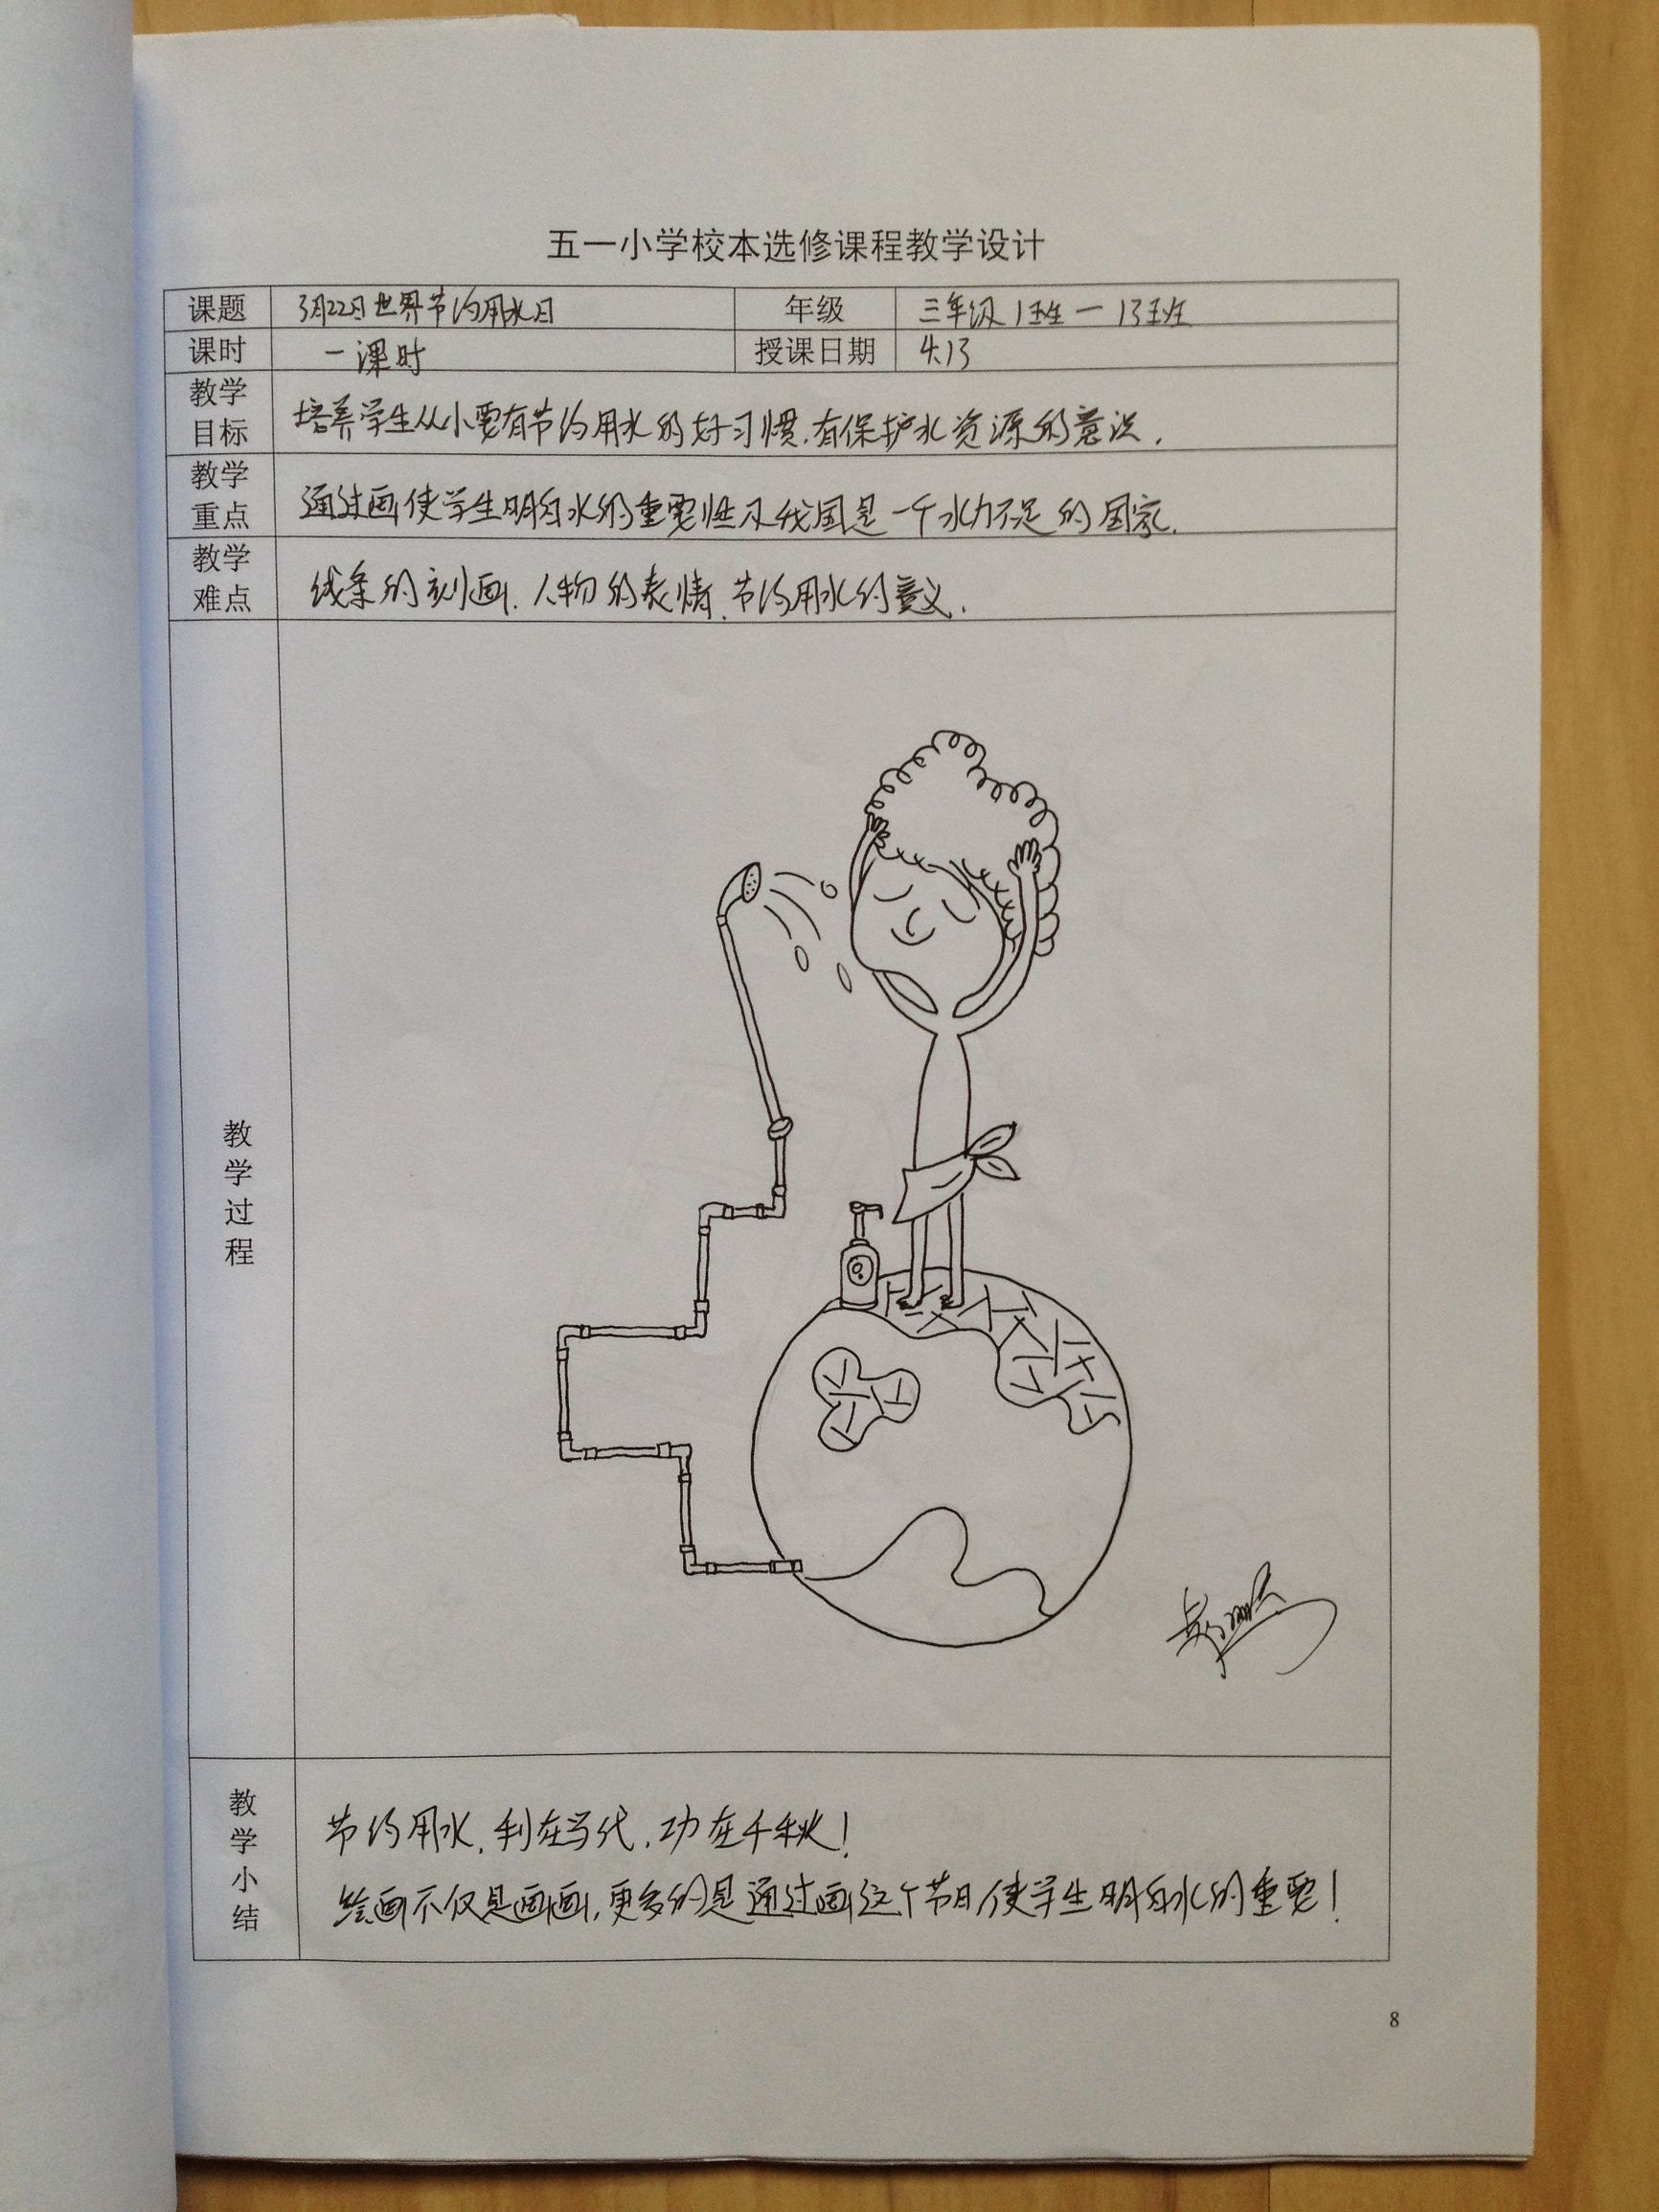 五一小学校本选修课程教学设计
课题 3月22日世界节约用水日 年级 三年级1班一13班
课时 一课时 授课日期 4.13
教学目标 培养学生从小要有节约用水的好习惯.有保护水资源的意识.
教学重点 通过画使学生明白水的重要性及我国是一个水力不足的国家.
教学难点 线条的刻画.人物的表情.节约用水的意义.
教学过程
教学小结 节约用水.利在当代.功在千秋!
绘画不仅是画画.更多的是通过画这个节日使学生明白水的重要!
8